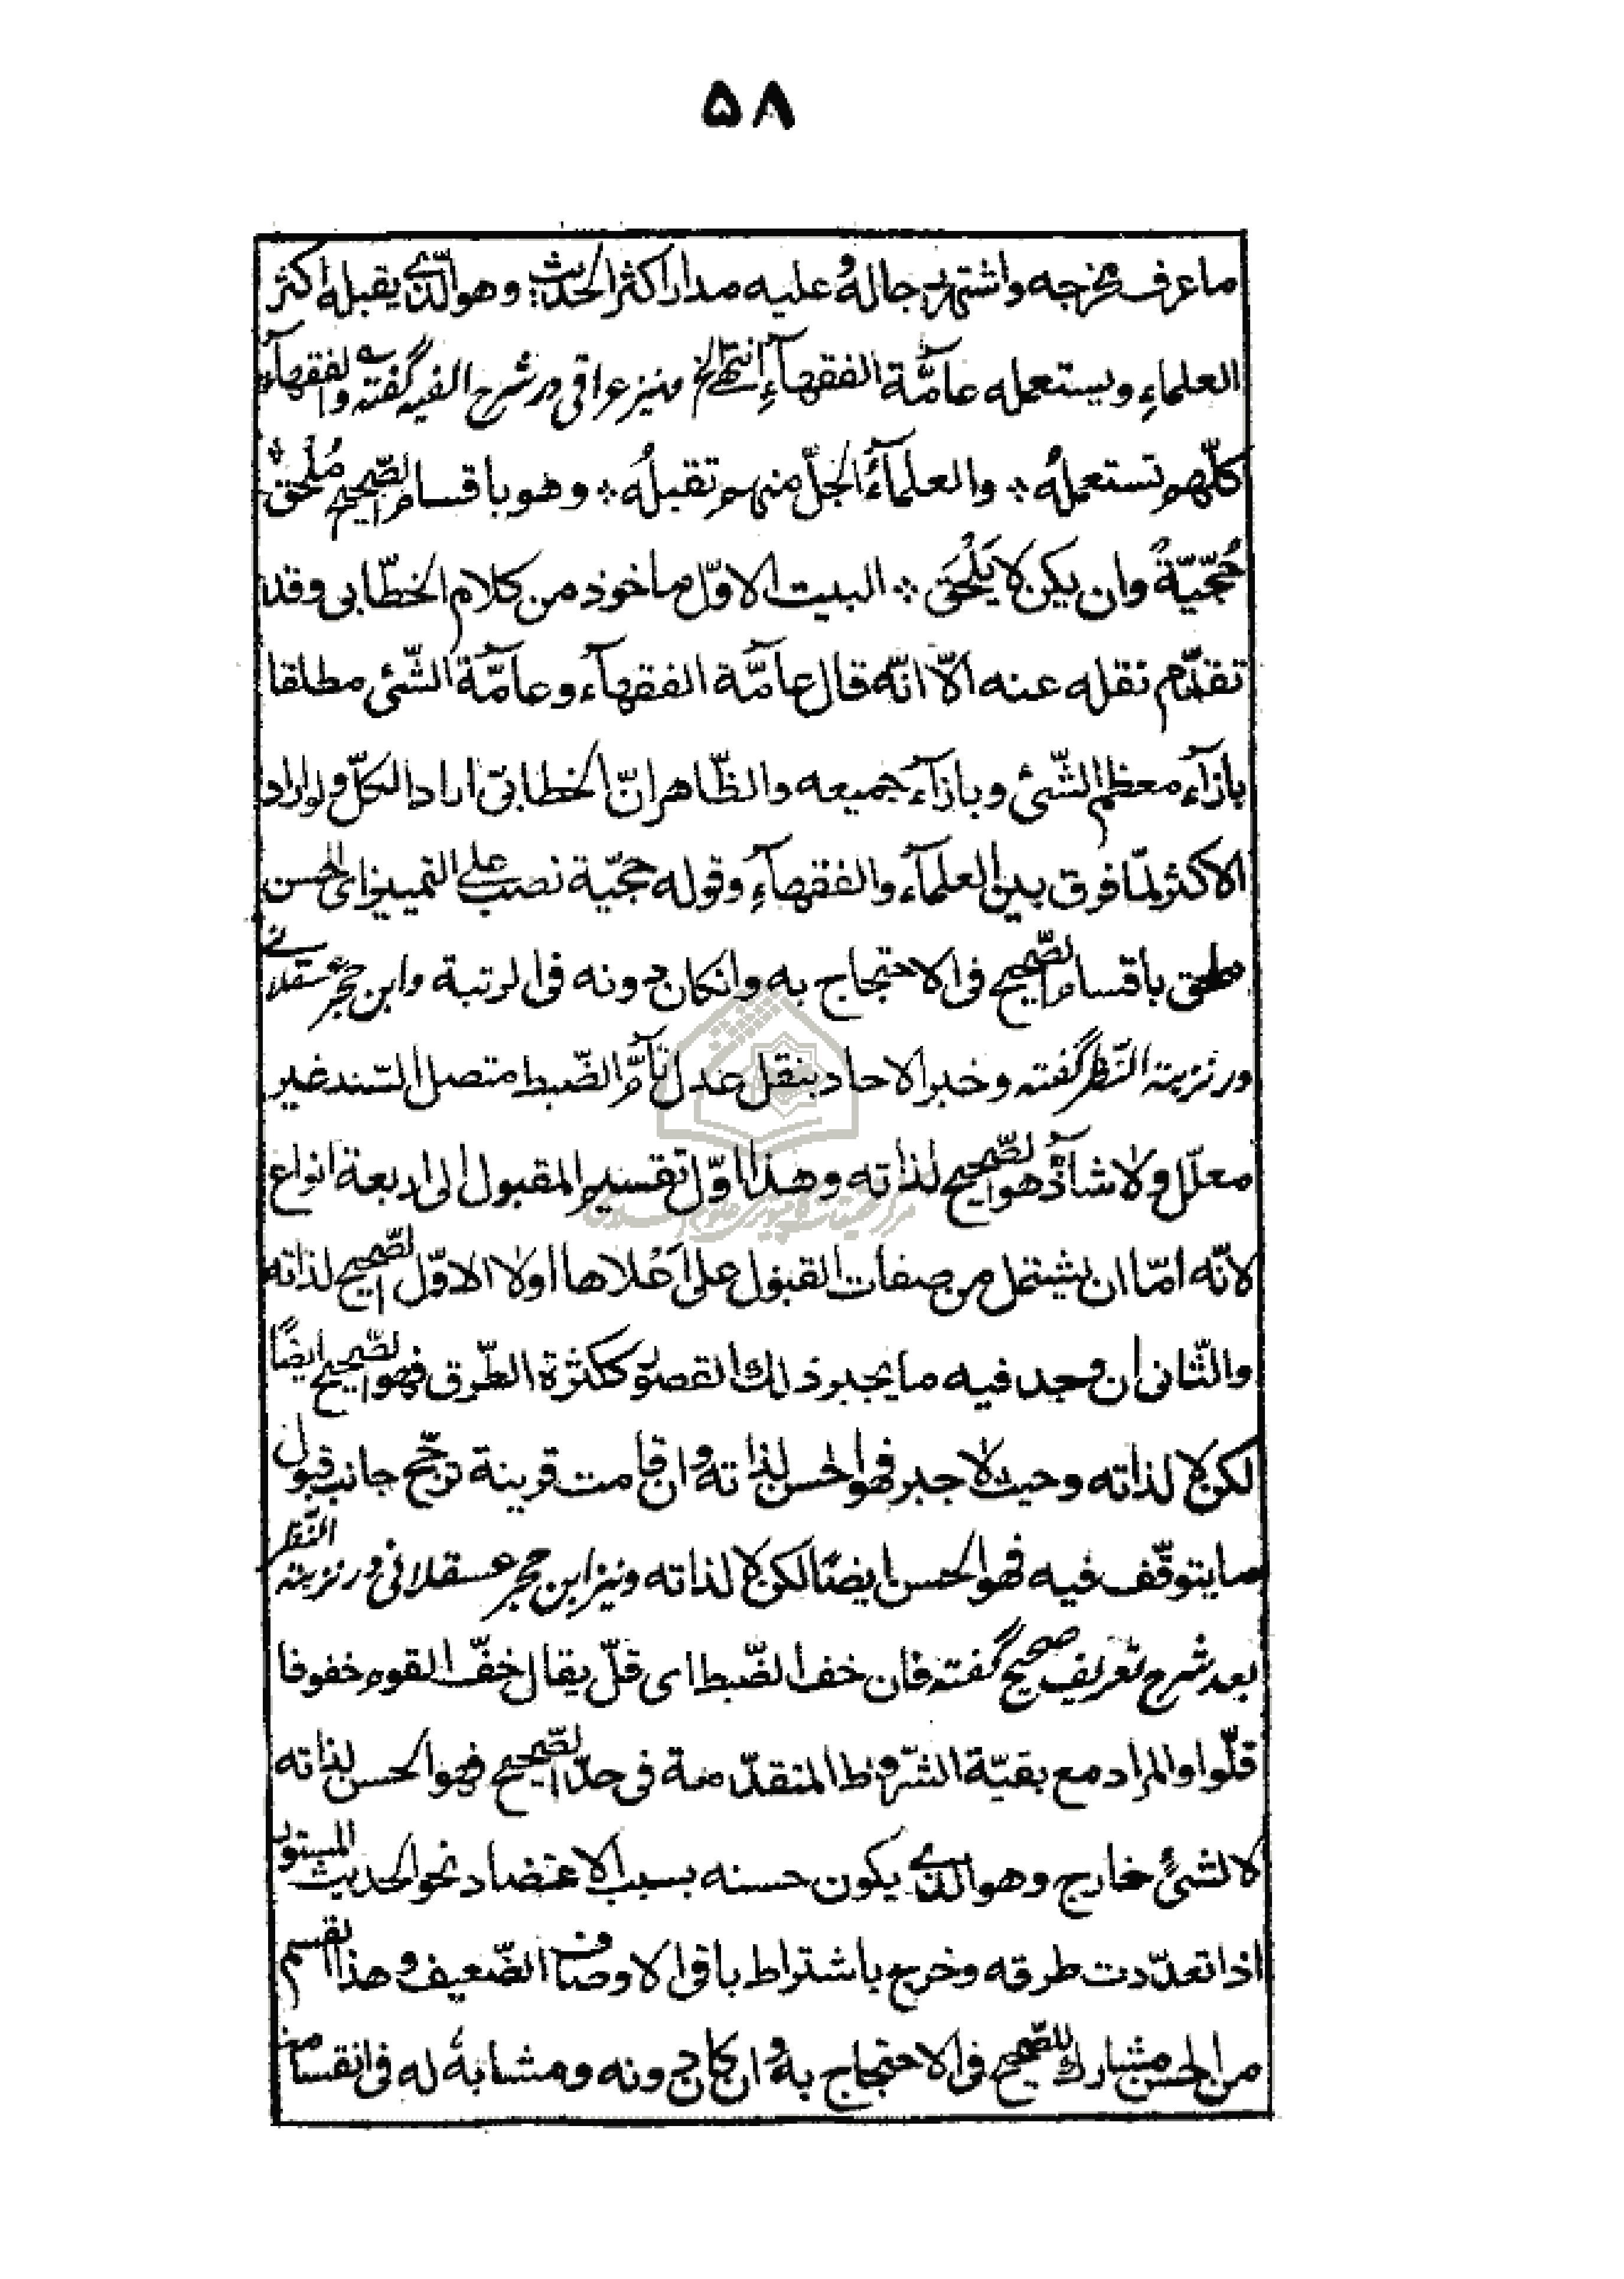 ۵۸
ما عرف مخرجه واشتهر رجاله وعليه مدار اكثر الحديث وهو الّذي يقبله اكثر
العلماءِ ويستعمله عامَّة الفقهآءِ انتهى الخ ونيز عراقى در شرح الفيه گفته ۞ والفقهآء
كلّهم تستعملهُ ۞ والعلمآءُ الجلّ منهم تقبلُه ۞ وهو باقسام الصّحيح مُلْحَق ۞
حُجّيّةً وان يكن لا يَلْحَق ۞ البيت الاوّل ماخوذ من كلام الخطّابى وقد
تقدّم نقله عنه الّا انّه قال عامَّة الفقهآء وعامَّة الشّئ مطلقا
بازآء معظم الشّئ وبازآء جميعه والظّاهر انّ الخطابىّ اراد الكلّ ولو اراد
الاكثر لمّا فرق بين العلمآء والفقهآءِ وقوله حجّيّة نصب على التميز اى الحسن
ملحق باقسام الصّحيح فى الاحتجاج به وانكان دونه فى الرتبة وابن حجر عسقلانى
در نزهة النّظر گفته وخبر الاحاد بنقل عدل تآمّ الضّبط متصل السّند غير
معلّل ولا شآذّ هو الصّحيح لذاته وهذا اوّل تقسيم المقبول الى اربعة انواع
لانّه امّا ان يشتمل من صفات القبول على اَعْلاها اولا الاوّل الصّحيح لذاته
والثّانى ان وجد فيه ما يجبر ذلك القصور ككثرة الطّرق فهو الصّحيح ايضًا
لكن لا لذاته وحيث لا جبر فهو الحسن لذاته وان قامت قرينة ترجّح جانب قبول
ما يتوقّف فيه فهو الحسن ايضًا لكن لا لذاته ونيز ابن حجر عسقلانى در نزهة النّظر
بعد شرح تعريف صحيح گفته فان خف الضّبط اى قلّ يقال خفّ القوم خفوفا
قلّوا والمراد مع بقيّة الشّروط المتقدّمة فى حدّ الصّحيح فهو الحسن لذاته
لا لشئٍ خارج وهو الّذي يكون حسنه بسبب الاعتضاد نحو الحديث المستور
اذا تعدّدت طرقه وخرج باشتراط باقى الاوصاف الضّعيف وهذا القسم
من الحسن مشارك للصّحيح فى الاحتجاج به وان كان دونه ومشابهٌ له فى انقسامه